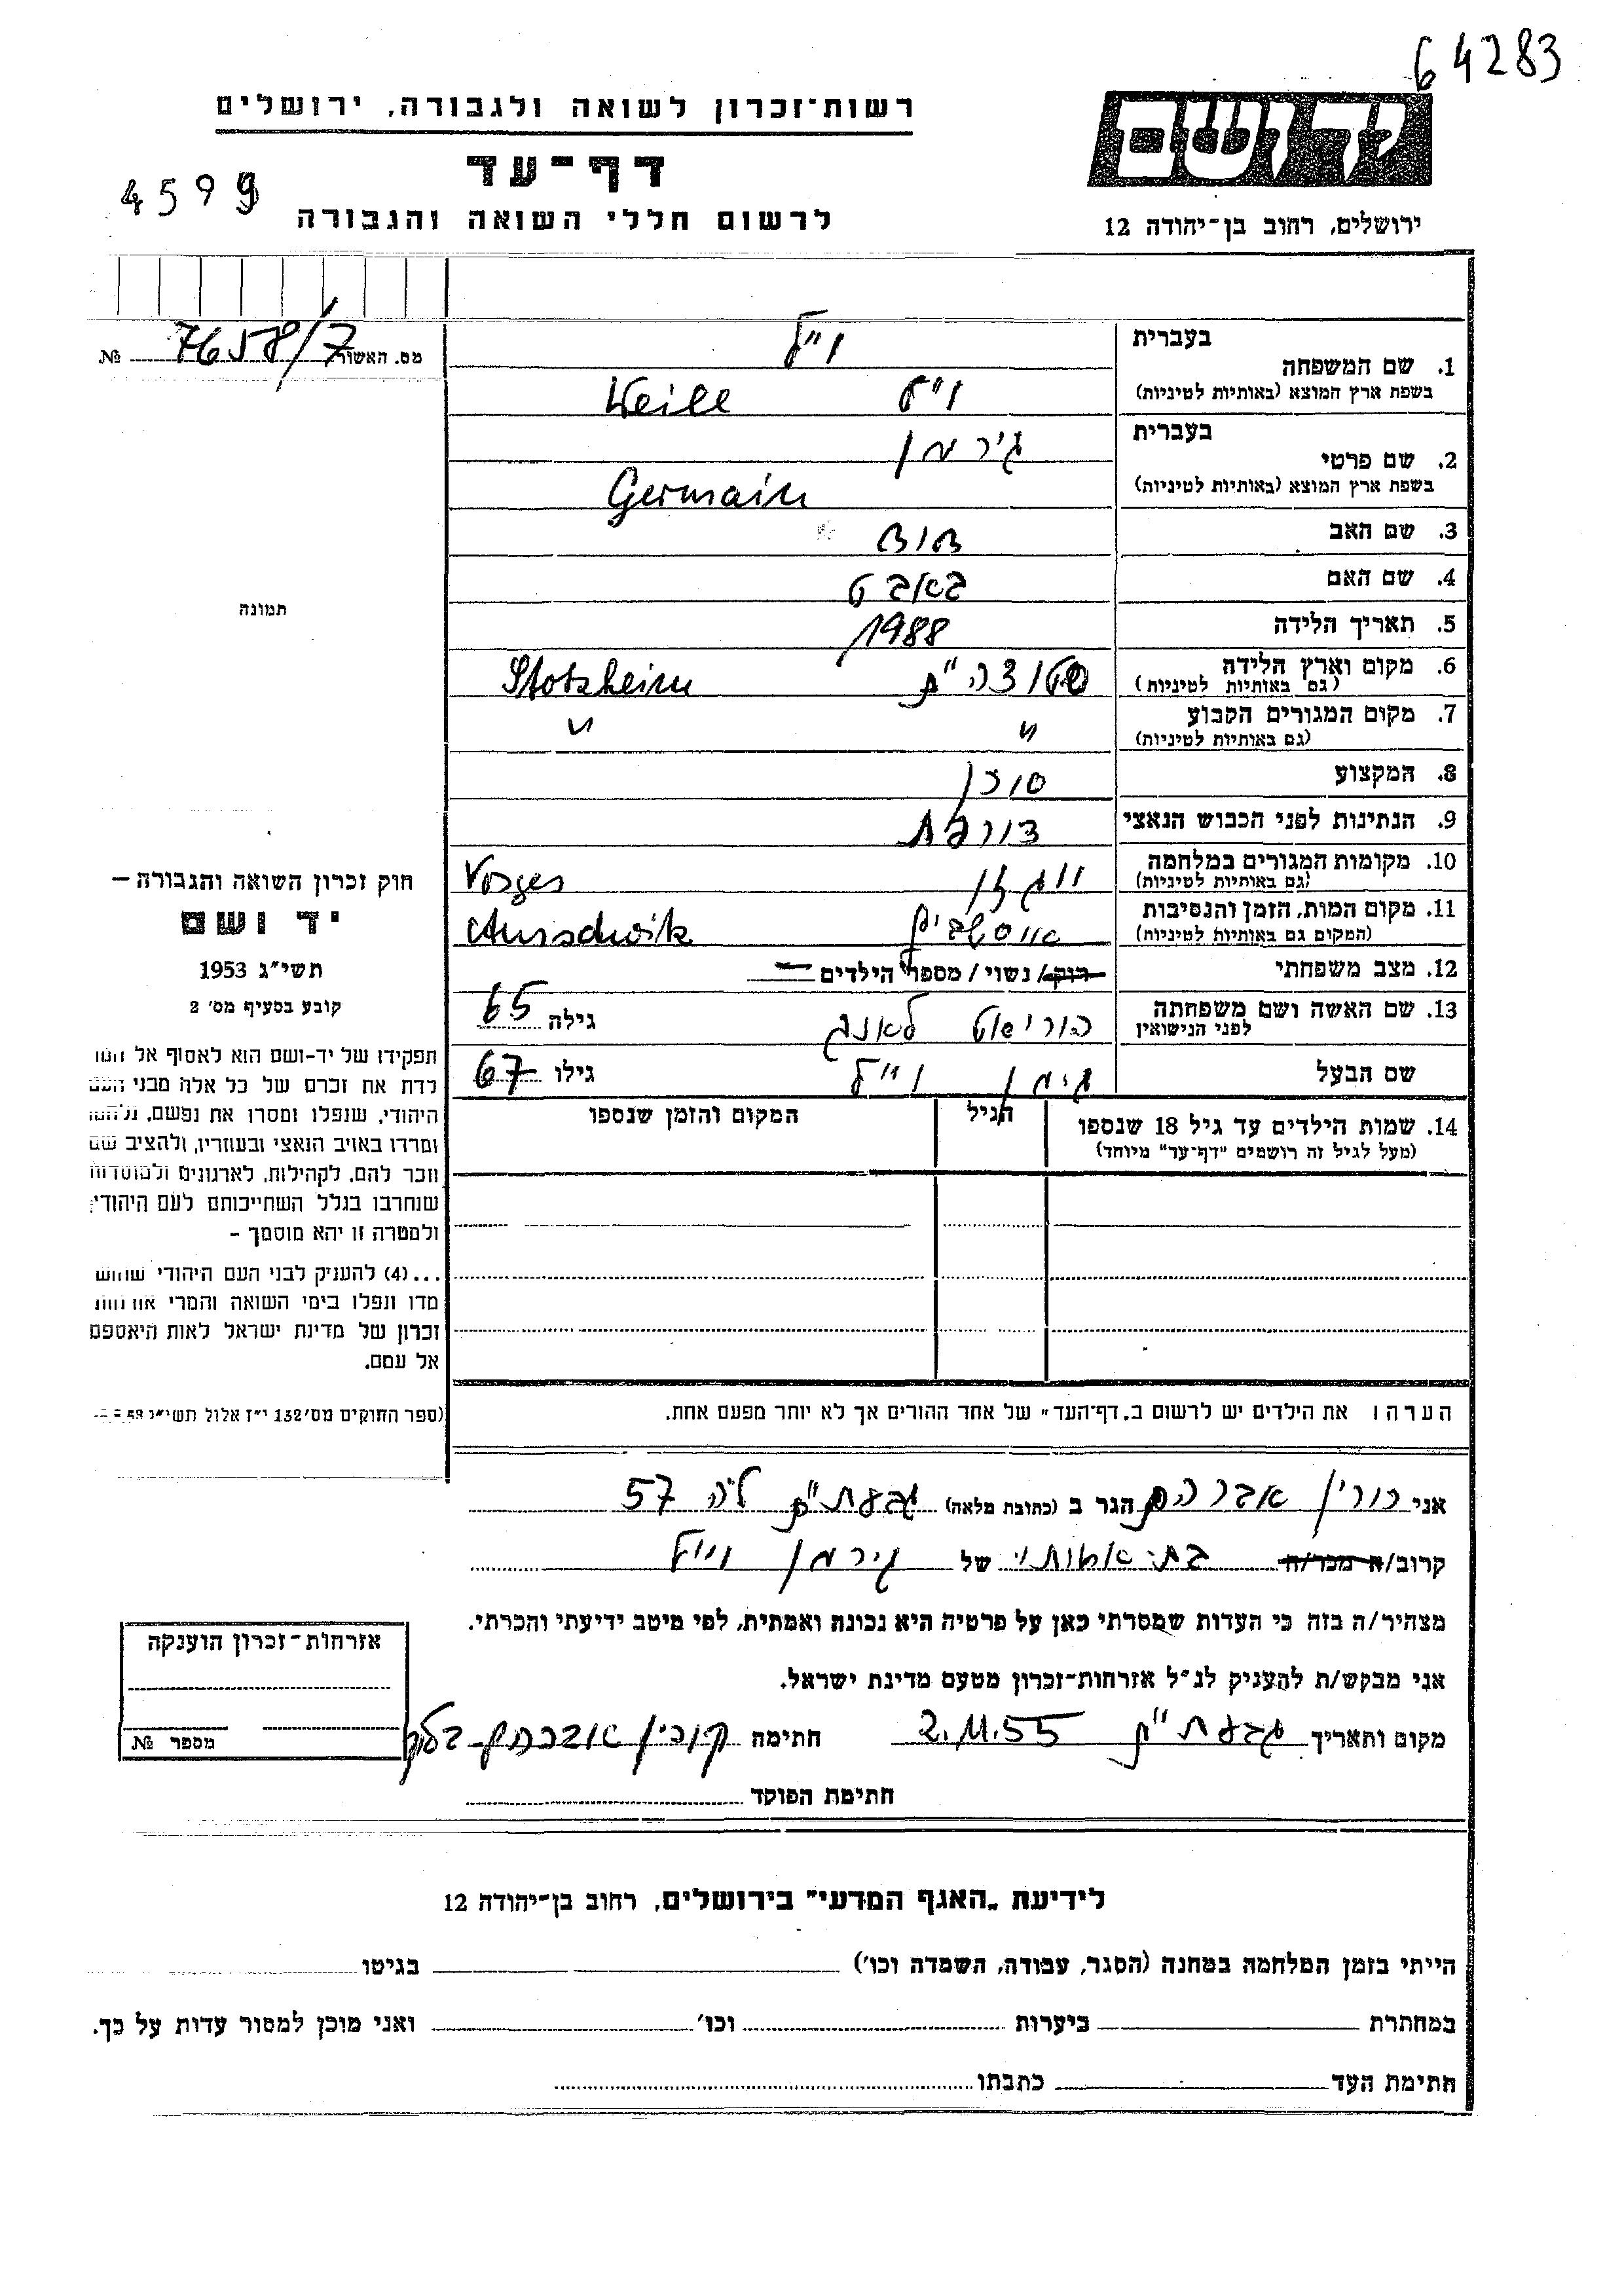 64283
רשות-זכרון לשואה ולגבורה, ירושלים
יד ושם
דף-עד
4599
לרשום חללי השואה והגבורה
ירושלים, רחוב בן-יהודה 12
מס. האשור 7658/7 №
בעברית
1. שם המשפחה
וייל
בשפת ארץ המוצא (באותיות לטיניות)
וייל Weill
בעברית
2. שם פרטי
ג'רמן
בשפת ארץ המוצא (באותיות לטיניות)
Germain
3. שם האב
4. שם האם
5. תאריך הלידה 1988
6. מקום וארץ הלידה
(גם באותיות לטיניות)
שטוצהיים Stotzheim
7. מקום המגורים הקבוע
(גם באותיות לטיניות)
" "
8. המקצוע סוכן
9. הנתינות לפני הכבוש הנאצי צורפת
10. מקומות המגורים במלחמה
(גם באותיות לטיניות)
Vosges
11. מקום המות, הזמן והנסיבות
(המקום גם באותיות לטיניות)
Ausschwitz
12. מצב משפחתי רווק / נשוי / מספר הילדים —
13. שם האשה ושם משפחתה
לפני הנישואין
לאנג גילה 65
שם הבעל וייל גילו 67
14. שמות הילדים עד גיל 18 שנספו
(מעל לגיל זה רושמים "דף-עד" מיוחד)
הגיל
המקום והזמן שנספו
הערה: את הילדים יש לרשום ב"דף-העד" של אחד ההורים אך לא יותר מפעם אחת.
תמונה
חוק זכרון השואה והגבורה —
יד ושם
תשי"ג 1953
קובע בסעיף מס' 2
תפקידו של יד-ושם הוא לאסוף אל
לדת את זכרם של כל אלה מבני העם
היהודי, שנפלו ומסרו את נפשם, נלחמו
ומרדו באויב הנאצי ובעוזריו, ולהציב שם
וזכר להם, לקהילות, לארגונים ולמוסדות
שנחרבו בגלל השתייכותם לעם היהודי;
ולמטרה זו יהא מוסמך -
...(4) להעניק לבני העם היהודי שהוש
מדו ונפלו בימי השואה והמרי אזרחות
זכרון של מדינת ישראל לאות היאספם
אל עמם.
(ספר החוקים מס' 132 י"ז אלול תשי"ג
אני קורין אברהם הגר ב (כתובת מלאה) גבעת"ם ל"ה 57
קרוב/ה מכר/ה של ג'רמן וייל
מצהיר/ה בזה כי העדות שמסרתי כאן על פרטיה היא נכונה ואמתית, לפי מיטב ידיעתי והכרתי.
אני מבקש/ת להעניק לנ"ל אזרחות-זכרון מטעם מדינת ישראל.
מקום ותאריך גבעת"ם 2.11.55 חתימה קורין אברהם-
חתימת הפוקד
אזרחות-זכרון הוענקה
מספר №
לידיעת "האגף המדעי" בירושלים, רחוב בן-יהודה 12
הייתי בזמן המלחמה במחנה (הסגר, עבודה, השמדה וכו') בגיטו
במחתרת ביערות וכו' ואני מוכן למסור עדות על כך.
חתימת העד כתבתו